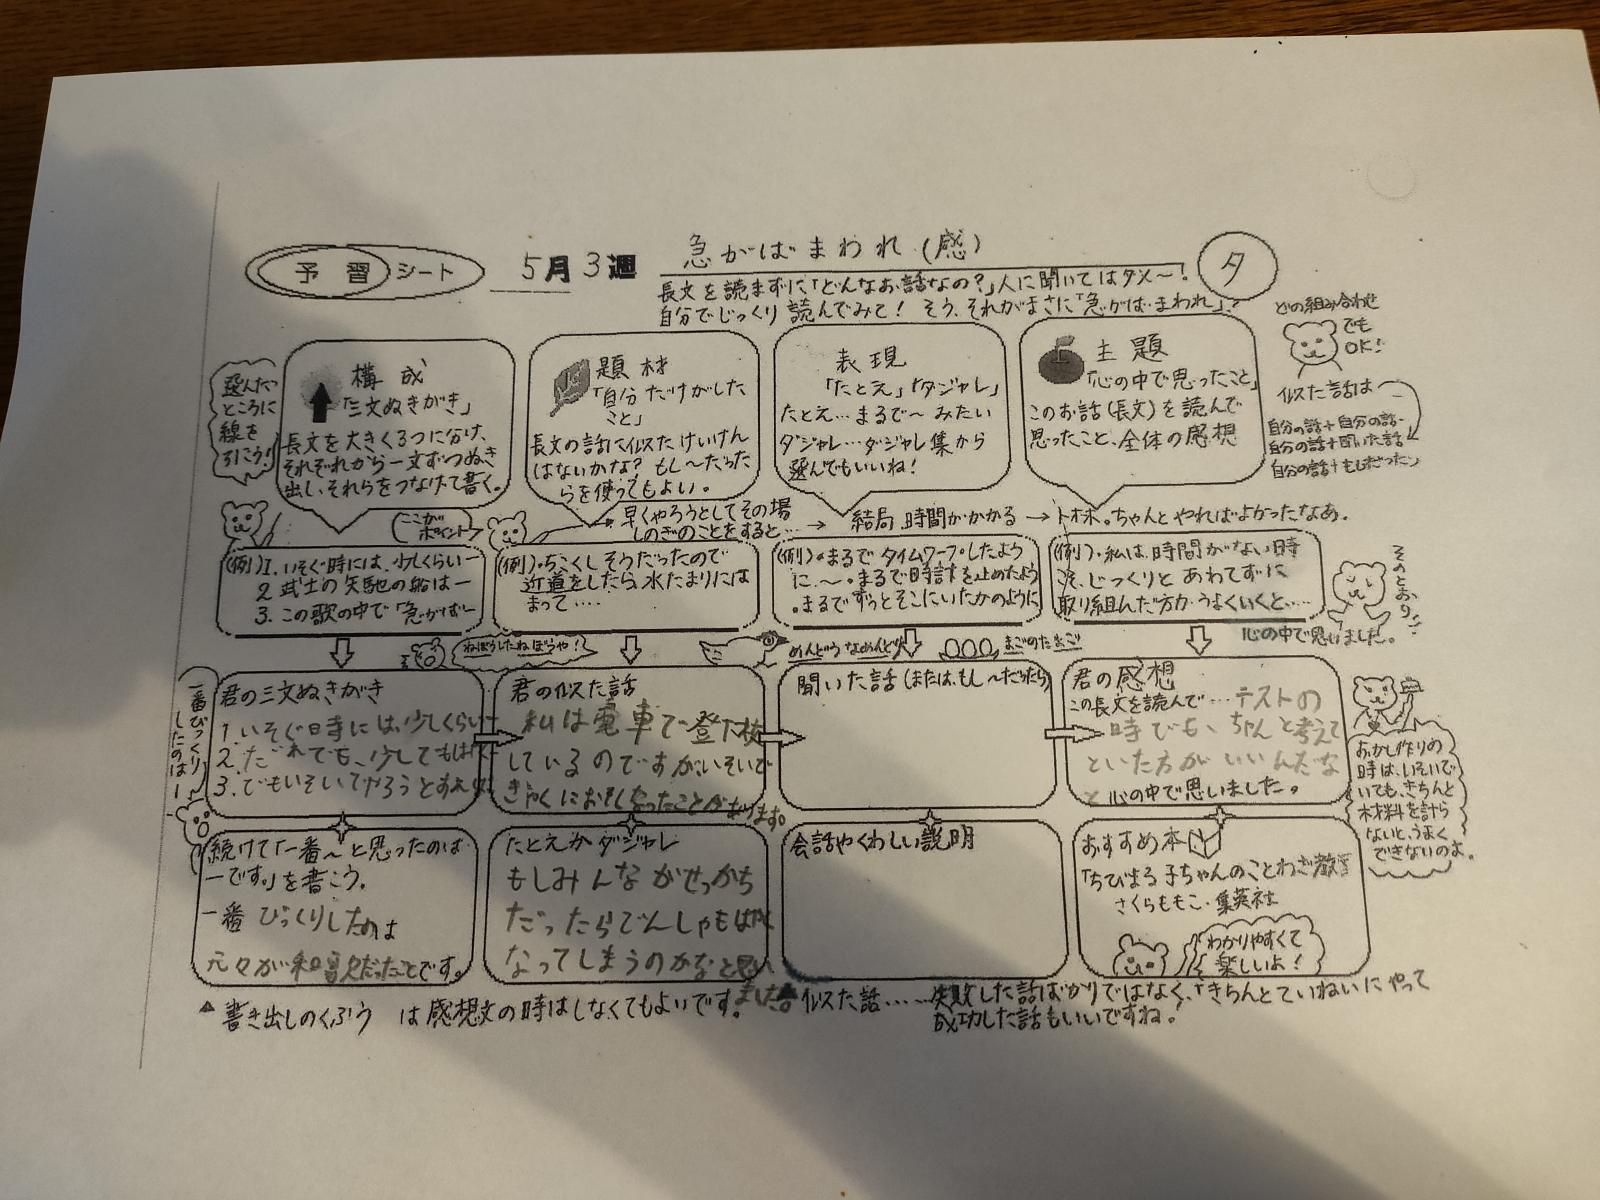 予習シート 5月3週 急がばまわれ(感) タ
長文を読まずに「どんなお話なの?」人に聞いてはダメ〜!
自分でじっくり読んでみて! そう、それがまさに「急がばまわれ」?
どの組み合わせ
でも
OK!
似た話は
自分の話+自分の話
自分の話+聞いた話
自分の話+もしだったら
選んだ
ところに
線を
引こう!
構成
「三文ぬきがき」
長文を大きく3つに分け、
それぞれから一文ずつぬき
出し、それらをつなげて書く。
題材
「自分だけがした
こと」
長文の話に似たけいけん
はないかな? もし〜だった
らを使ってもよい。
表現
「たとえ」「ダジャレ」
たとえ…まるで〜みたい
ダジャレ…ダジャレ集から
選んでもいいね!
主題
「心の中で思ったこと」
このお話(長文)を読んで
思ったこと、全体の感想
ここが
ポイント
早くやろうとしてその場
しのぎのことをすると…
→ 結局、時間がかかる → トホホ。ちゃんとやればよかったなあ。
(例)1. いそぐ時には、少しくらいー
2 武士の矢馳の船はー
3. この歌の中で「急がばー
(例)・ちこくしそうだったので
近道をしたら、水たまりには
まって….
(例)・まるでタイムワープしたよう
に、〜。・まるで時計を止めたよう
・まるでずっとそこにいたかのように
(例)・私は、時間がない時
こそ、じっくりとあわてずに
取り組んだ方がうまくいくと….
心の中で思いました。
そのとおり!
ねぼうしたねぼうや!
めんどうなめんどり
まごのたまご
一番びっくり
したのはー
君の三文ぬきがき
1. いそぐ時には、少しくらい
2. だれでも、少しでもはやく
3. でもいそいでやろうとすれば
君の似た話
私は電車で登下校
しているのですが、いそいで
ぎゃくにおそくなったことがあります。
聞いた話(または、もし〜だったら)
君の感想
この長文を読んで…テストの
時でも、ちゃんと考えて
といた方がいいんだな
と心の中で思いました。
おかし作りの
時は、いそいで
いても、きちんと
材料を計ら
ないと、うまく
できないのよ。
続けて「一番〜と思ったのは
ーです。」を書こう。
一番びっくりしたのは
元々が和歌だったことです。
たとえかダジャレ
もしみんながせっかち
だったらでんしゃもはやく
なってしまうのかなと思い
ました。
会話やくわしい説明
おすすめ本
「ちびまる子ちゃんのことわざ教室
さくらももこ・集英社
わかりやすくて
楽しいよ!
▲書き出しのくふう は感想文の時はしなくてもよいです。
似た話……失敗した話ばかりではなく、「きちんとていねいにやって
成功した話もいいですね!